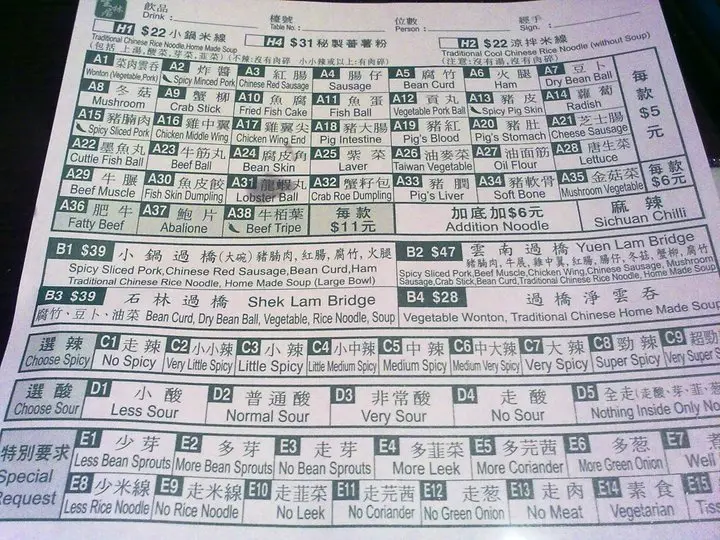 雲林居 飲品 Drink : 檯號 Table No.: 位數 Person : 經手 Sign. :
H1 $22 小鍋米線 H4 $31 秘製番薯粉 H2 $22 涼拌米線
Traditional Chinese Rice Noodle,Home Made Soup Traditional Cool Chinese Rice Noodle (without Soup)
A1 菜肉雲吞 A2 炸醬 A3 紅腸 A4 腸仔 A5 腐竹 A6 火腿 A7 豆卜 每款$5元
Wonton (Vegetable,Pork) Spicy Minced Pork Chinese Red Sausage Sausage Bean Curd Ham Dry Bean Ball
A8 冬菇 A9 蟹柳 A10 魚腐 A11 魚蛋 A12 貢丸 A13 豬皮 A14 蘿蔔
Mushroom Crab Stick Fried Fish Cake Fish Ball Vegetable Pork Ball Spicy Pig Skin Radish
A15 豬腩肉 A16 雞中翼 A17 雞翼尖 A18 豬大腸 A19 豬紅 A20 豬肚 A21 芝士腸
Spicy Sliced Pork Chicken Middle Wing Chicken Wing End Pig Intestine Pig's Blood Pig's Stomach Cheese Sausage
A22 墨魚丸 A23 牛筋丸 A24 腐皮角 A25 紫菜 A26 油麥菜 A27 油面筋 A28 唐生菜
Cuttle Fish Ball Beef Ball Bean Skin Laver Taiwan Vegetable Oil Flour Lettuce
A29 牛𦟌 A30 魚皮餃 A31 龍蝦丸 A32 蟹籽包 A33 豬膶 A34 豬軟骨 A35 金菇菜 每款$6元
Beef Muscle Fish Skin Dumpling Lobster Ball Crab Roe Dumpling Pig's Liver Soft Bone Mushroom Vegetable
A36 肥牛 A37 鮑片 A38 牛栢葉 每款 $11元 加底加$6元 麻辣
Fatty Beef Abalione Beef Tripe Addition Noodle Sichuan Chilli
B1 $39 小鍋過橋(大碗) 豬腩肉,紅腸,腐竹,火腿 B2 $47 雲南過橋 Yuen Lam Bridge
豬腩肉,牛展,雞中翼,紅腸,腸仔,冬菇,蟹柳,腐竹
Spicy Sliced Pork,Chinese Red Sausage,Bean Curd,Ham Spicy Sliced Pork,Beef Muscle,Chicken Wing,Chinese Sausage, Mushroom
Traditional Chinese Rice Noodle, Home Made Soup (Large Bowl) Sausage,Crab Stick,Bean Curd, Traditional Chinese Rice Noodle, Home Made Soup
B3 $39 石林過橋 Shek Lam Bridge B4 $28 過橋淨雲吞
腐竹、豆卜、油菜 Bean Curd, Dry Bean Ball, Vegetable, Rice Noodle, Soup Vegetable Wonton, Traditional Chinese Home Made Soup
選辣 C1 走辣 C2 小小辣 C3 小辣 C4 小中辣 C5 中辣 C6 中大辣 C7 大辣 C8 勁辣 C9 超勁
Choose Spicy No Spicy Very Little Spicy Little Spicy Little Medium Spicy Medium Spicy Medium Very Spicy Very Spicy Super Spicy Very Super
選酸 D1 小酸 D2 普通酸 D3 非常酸 D4 走酸 D5 全走(走酸、芽、韮
Choose Sour Less Sour Normal Sour Very Sour No Sour Nothing Inside Only
特別要求 E1 少芽 E2 多芽 E3 走芽 E4 多韮菜 E5 多芫茜 E6 多葱 E7
Special Request Less Bean Sprouts More Bean Sprouts No Bean Sprouts More Leek More Coriander More Green Onion Well
E8 少米線 E9 走米線 E10 走韮菜 E11 走芫茜 E12 走葱 E13 走肉 E14 素食 E15
Less Rice Noodle No Rice Noodle No Leek No Coriander No Green Onion No Meat Vegetarian